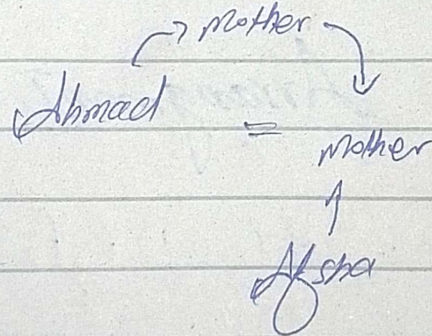 Mother
Ahmad = Mother
Afsha